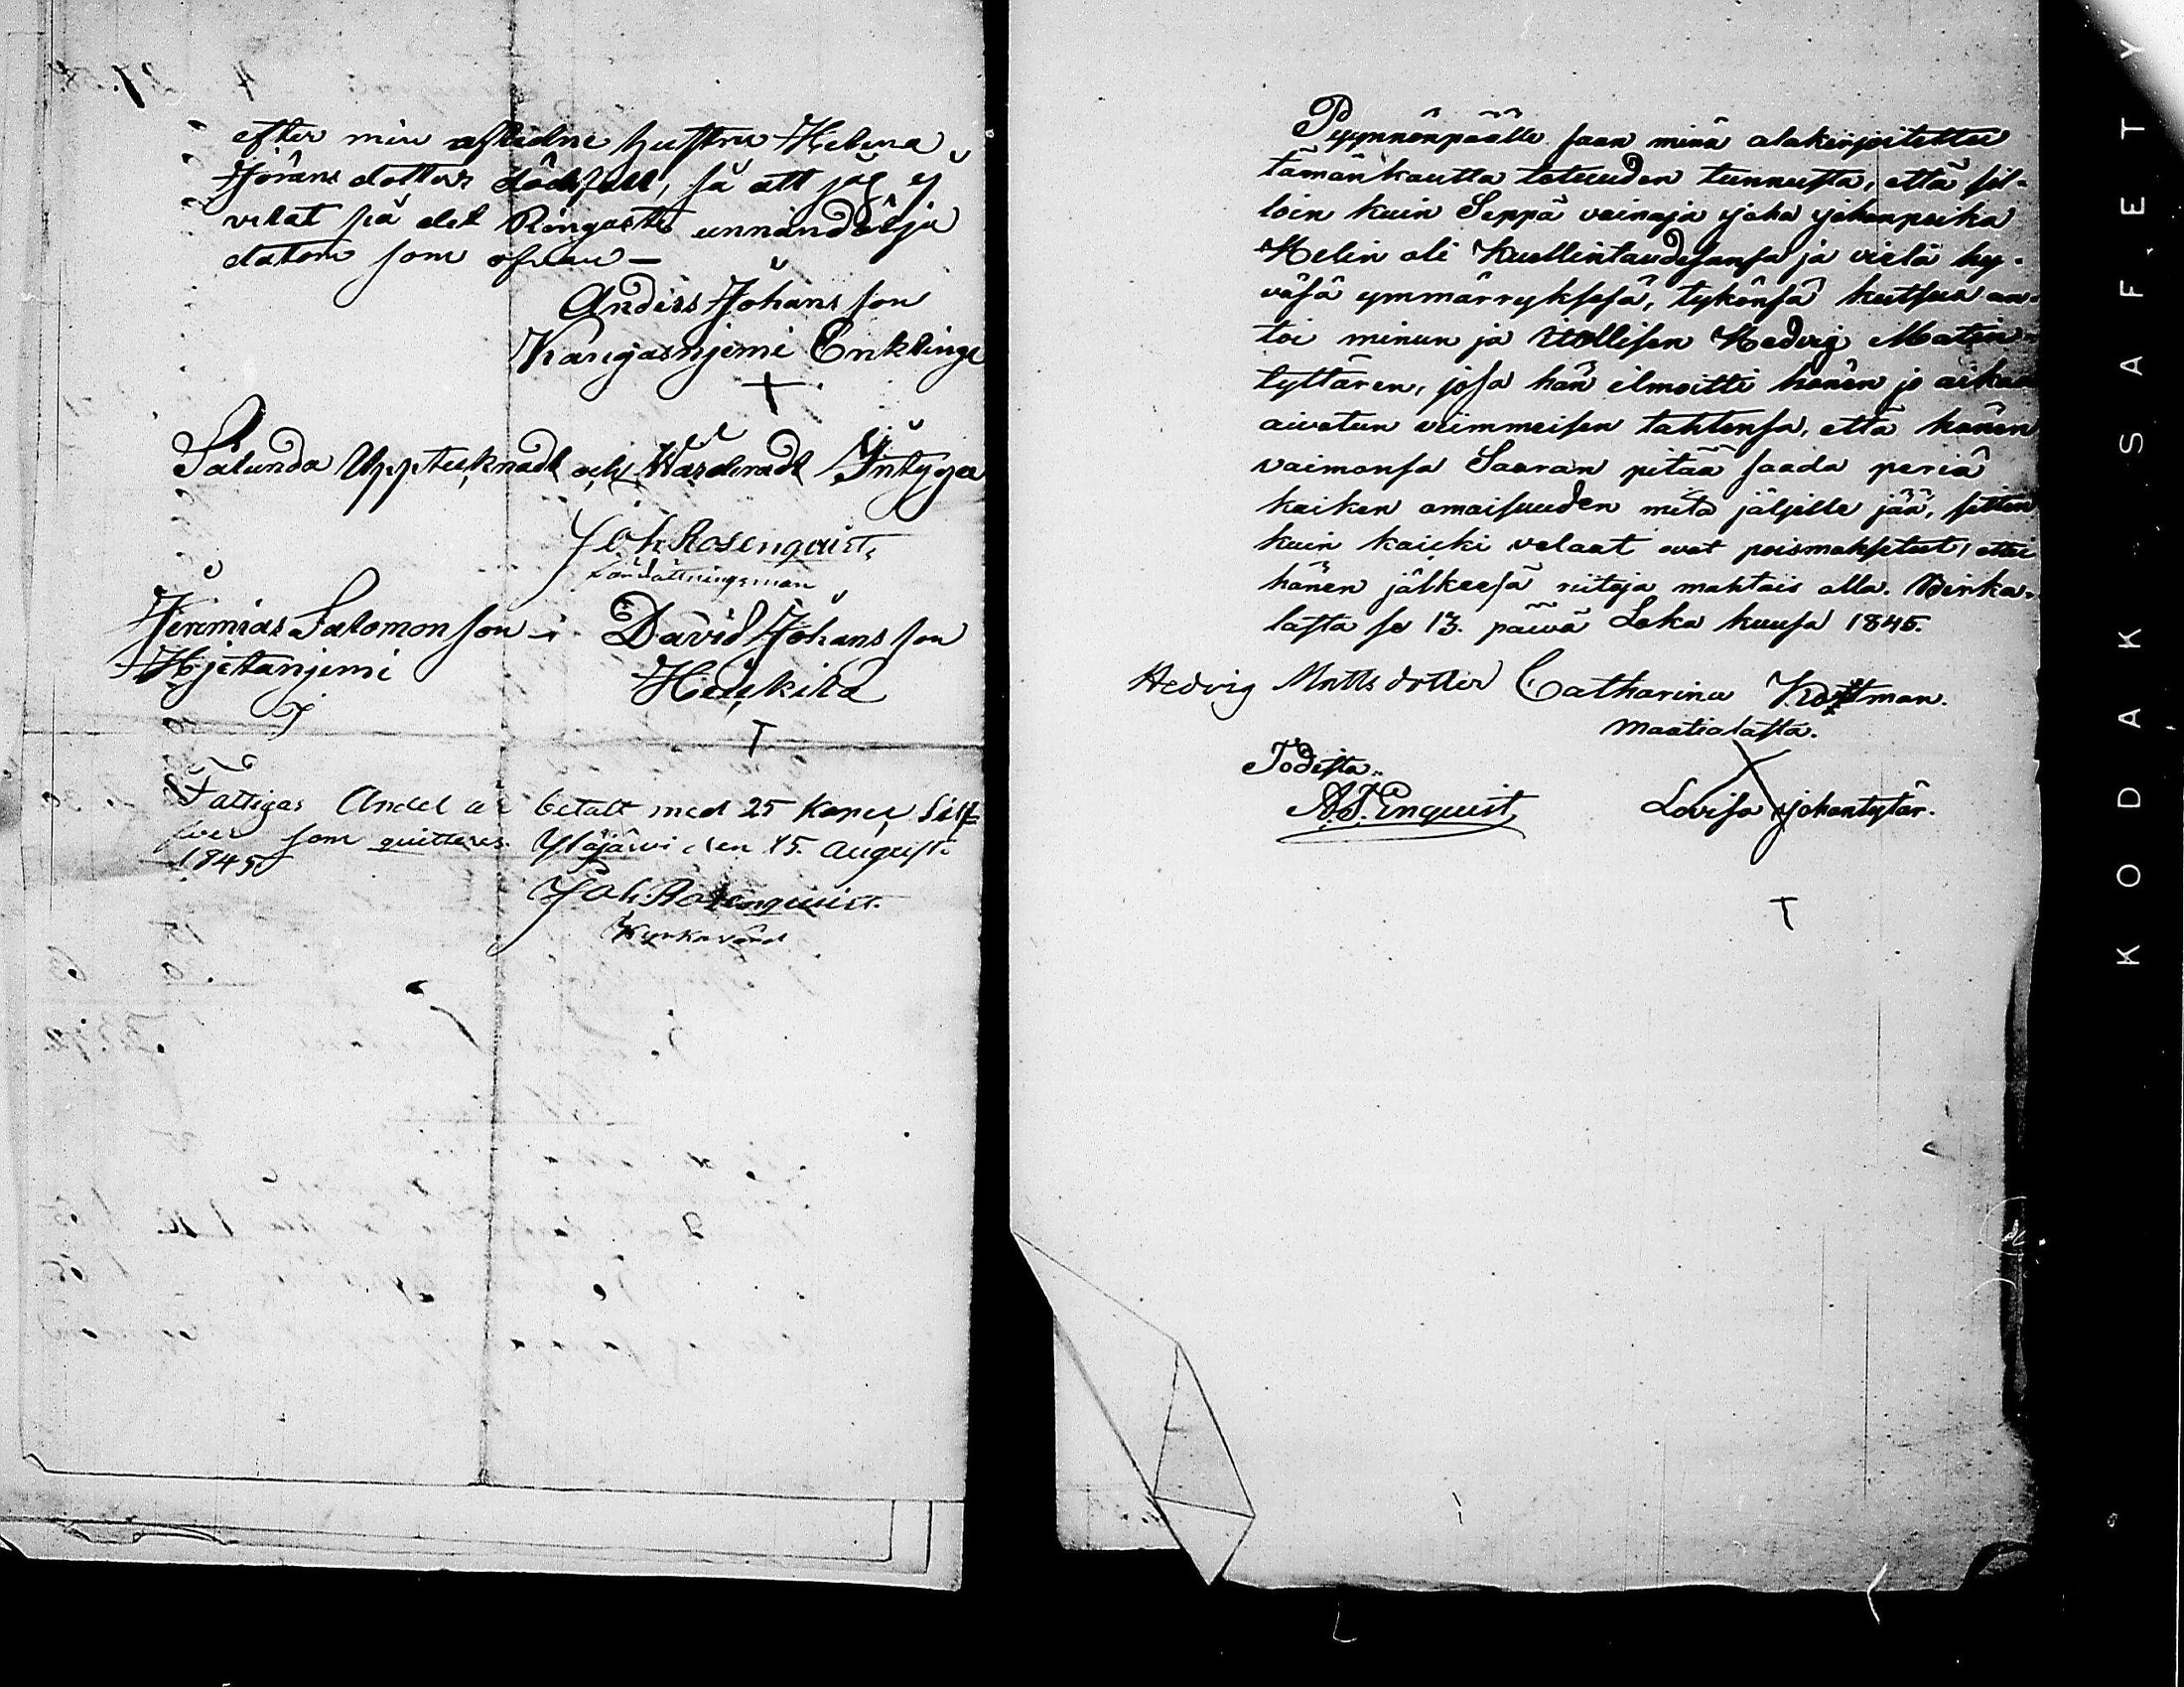 efter min aflidne hustru Helena
Jörans dotter dödsfall, så att jag ej
velat på det Ringaste unnandölja
datom som ofvan —
Anders Johans son
Kangasnjemi Enklinge
Sålunda Upptecknadt och Värderadt Intyga
Joh Rosenquist,
Jeremias Salomonson — David Johans son
Hjetanjemi Heickilä
Fattigas Andel är betalt med 25 Kopek Silf=
ver som quitteres. Ylöjärvi den 15. Augusti
1845
Joh. Rosenquist.
Kyrkovärd
Pyynnönpäälle saan minä alakirjoitettu
tämänkautta totuuden tunnusta, että sil-
loin kuin Seppä vainaja Joha Johanpoika
Helin oli Kuollintaudisansa ja vielä hy-
väsä ymmärryksesä, tykönsä kutsua an-
toi minun ja itollisen Hedvig Matin-
tyttären, josa hän ilmoitti hänen jo aikaa
aivotun viimmeisen tahtonsa, että hänen
vaimonsa Saaran pitää saada periä
kaiken omaisuuden mitä jäljille jää, sitten
kuin kaicki velaat ovat poismaksetut, ettei
hänen jälkeesä riitoja mahtais olla. Pirka-
lasta se 13. päivä Loka kuusa 1845.
Hedvig Matts dotter Catharina
Maatialasta.
Todista..
A. J. Enquist, Lovisa Johantytär.
KODAK SAFETY